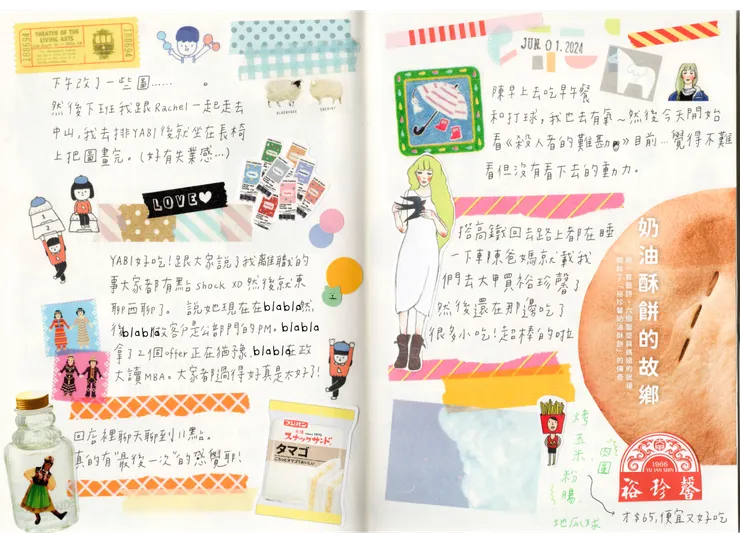 THEATRE OF THE
LIVING ARTS
188694
188694
下午改了一些圖……。
然後下班我跟Rachel一起走去
中山,我去排YABI後就坐在長椅
上把圖畫完。(好有失業感…)
LOVE
YABI好吃!跟大家說了我離職的
事大家都有點shock XD然後就東
聊西聊了。說她現在在blabla然
後blabla做客戶是公部門的PM。blabla
拿了2個offer正在猶豫,blabla在政
大讀MBA。大家都過得好真是太好了!
回店裡聊天聊到11點。
真的有"最後一次"的感覺耶!
フジパン
スナックサンド
タマゴ
JUN 01.2024
陳早上去吃早午餐
和打球,我也去有氧~然後今天開始
看《殺人者的難堪》目前…覺得不難
看但沒有看下去的動力。
搭高鐵回去路上都在睡
一下車陳爸媽就載我
們去大甲買裕珍馨了
然後還在那邊吃了
很多小吃!超棒的啦
奶油酥餅的故鄉
烤玉米、肉圓
粉腸、
地瓜球
1966
YU JAN SHIN
裕珍馨
才$65,便宜又好吃